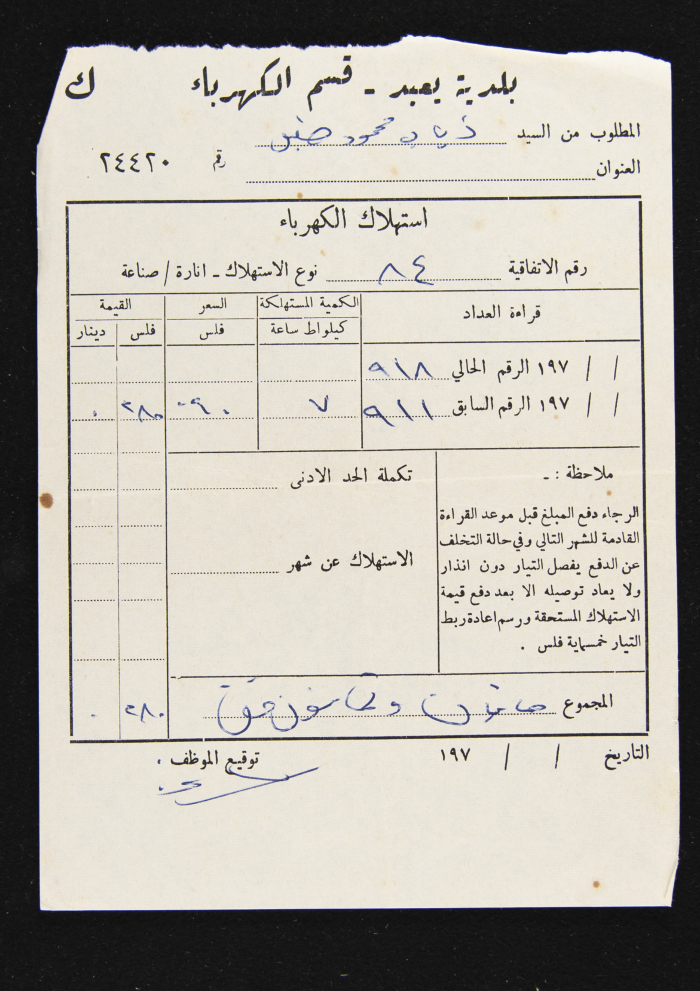 بلدية يعبد - قسم الكهرباء ك
المطلوب من السيد ذياب محمود
العنوان رقم ٢٤٤٢٠
استهلاك الكهرباء
رقم الاتفاقية ٨٤ نوع الاستهلاك - انارة / صناعة
قراءة العداد الكمية المستهلكة السعر القيمة
كيلواط ساعة فلس فلس دينار
/ / ١٩٧ الرقم الحالي ٩١٨
/ / ١٩٧ الرقم السابق ٩١١ ٧ ٢٨٠ ٠
ملاحظة : -
الرجاء دفع المبلغ قبل موعد القراءة
القادمة للشهر التالي وفي حالة التخلف
عن الدفع يفصل التيار دون انذار
ولا يعاد توصيله الا بعد دفع قيمة
الاستهلاك المستحقة ورسم اعادة ربط
التيار خمسماية فلس .
تكملة الحد الادنى
الاستهلاك عن شهر
المجموع مائتان وثمانون ٢٨٠ ٠
التاريخ / / ١٩٧ توقيع الموظف .